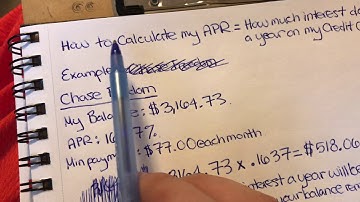 How to Calculate my APR = How much interest do
a year on my Credit C
Example:
Chase
My Balance: $3,164.73
APR: 16 7%
Min payment: $77.00 each month
3164.73 x .1637 = $518.06
interest a year will be
your balance